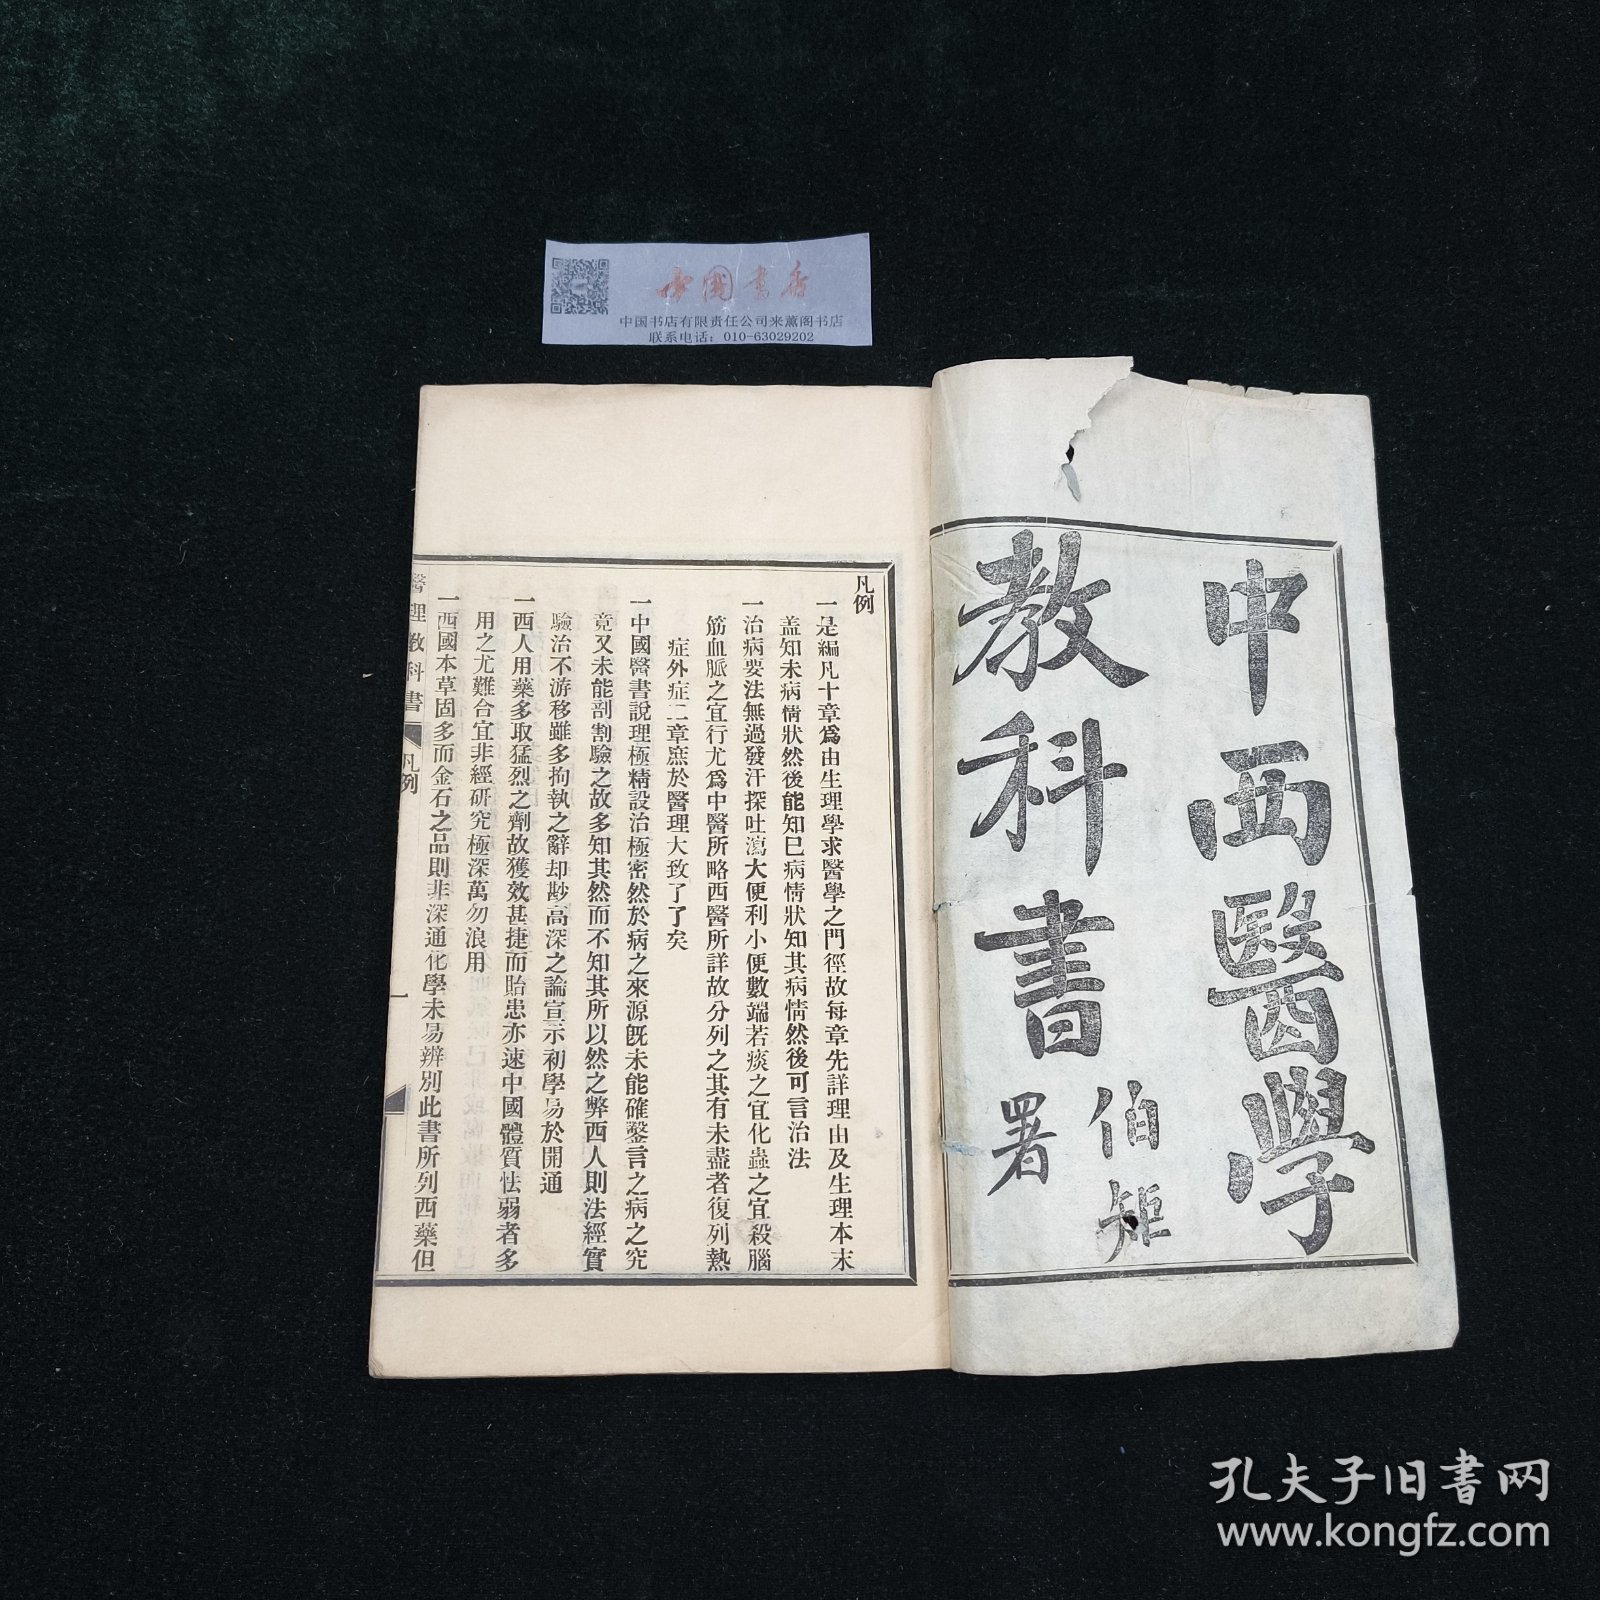 中国书店
中国书店有限责任公司来薰阁书店
联系电话：010-63029202
中西醫學
教科書
伯矩
署
凡例
一是編凡十章爲由生理學求醫學之門徑故每章先詳理由及生理本末
盖知未病情狀然後能知已病情狀知其病情然後可言治法
一治病要法無過發汗探吐瀉大便利小便數端若痰之宜化蟲之宜殺腦
筋血脈之宜行尤爲中醫所略西醫所詳故分列之其有未盡者復列熱
症外症二章庶於醫理大致了了矣
一中國醫書說理極精設治極密然於病之來源旣未能確鑿言之病之究
竟又未能剖割驗之故多知其然而不知其所以然之弊西人則法經實
驗治不游移雖多拘執之辭却尠高深之論宣示初學易於開通
一西人用藥多取猛烈之劑故獲效甚捷而貽患亦速中國體質怯弱者多
用之尤難合宜非經研究極深萬勿浪用
一西國本草固多而金石之品則非深通化學未易辨別此書所列西藥但
醫理教科書
凡例
一
孔夫子旧书网
www.kongfz.com